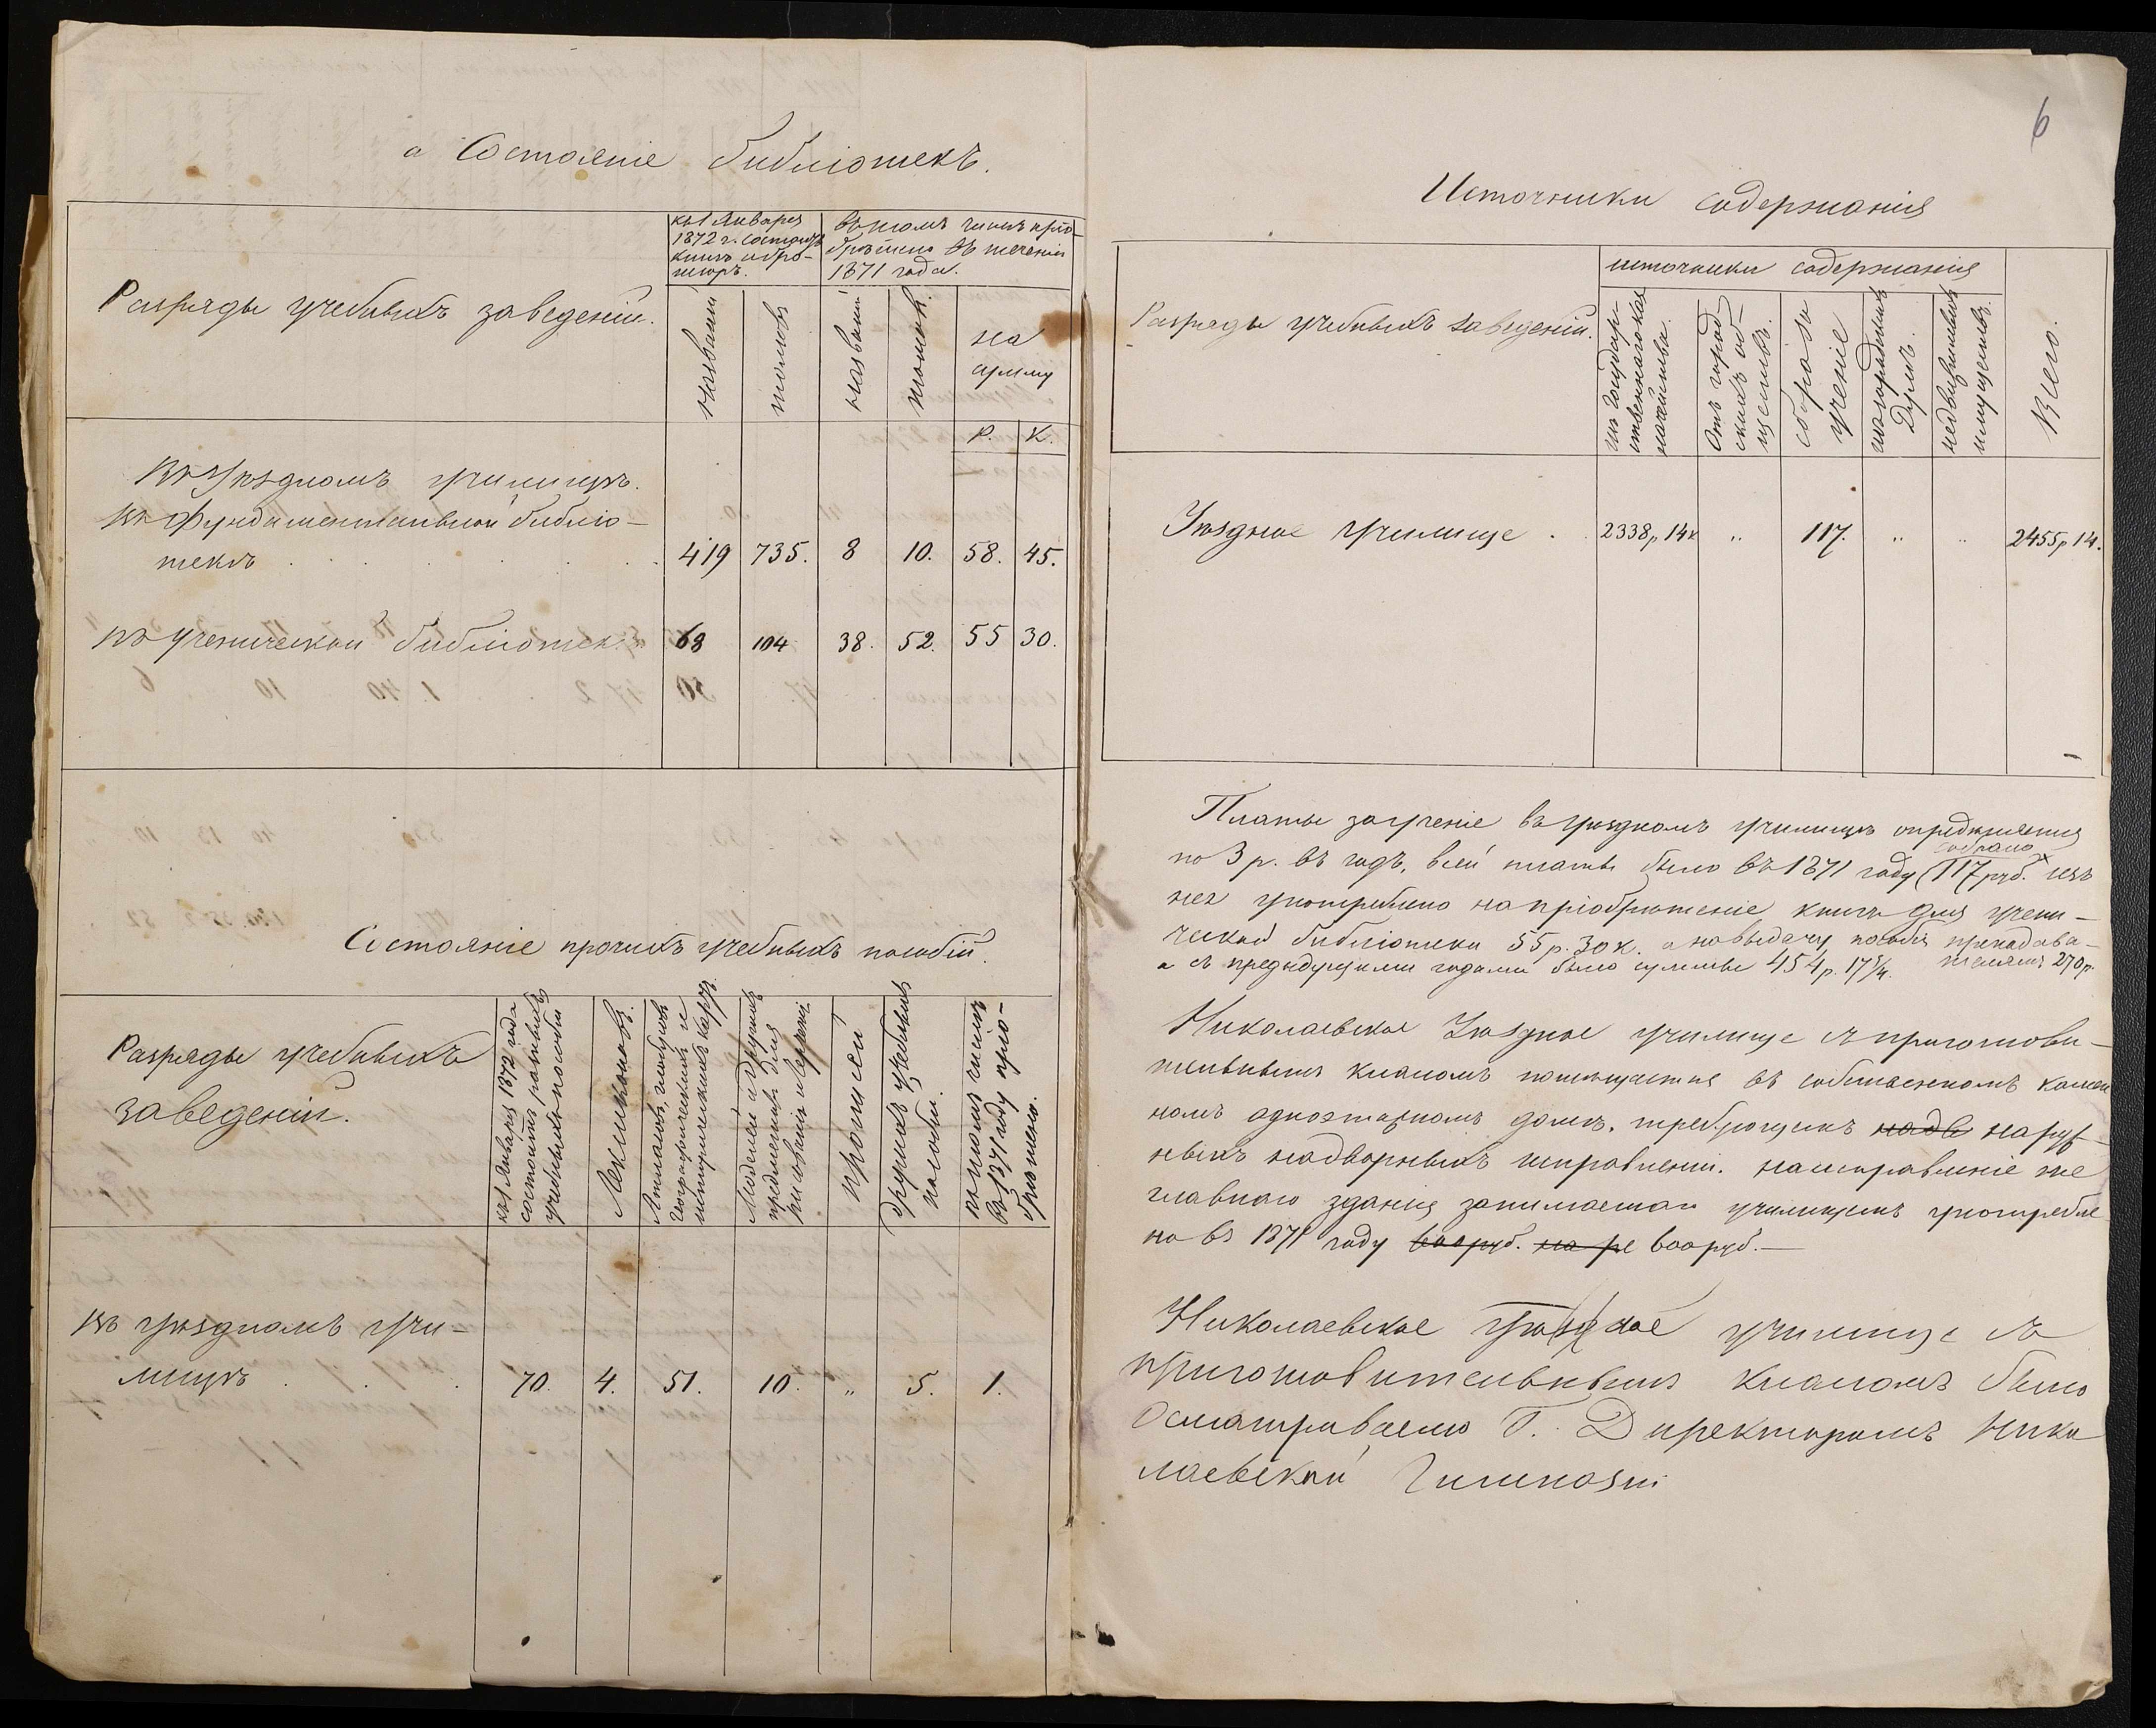 а Состояніе библіотекъ.
Разряды учебныхъ заведеній.
къ 1 Января
1872 г. состоитъ
книгъ и бро-
шюръ.
въ томъ числѣ прі-
обрѣтено въ теченіи
1871 года.
названій
томовъ
названій
томовъ.
на
сумму
Р. К.
Въ Уѣздномъ училищѣ.
Въ Фундаментальной библіо-
текѣ 419 735. 8 10. 58. 45.
въ ученической библіотек 68 104 38. 52. 55 30.
Состояніе прочихъ учебныхъ пособій.
Разряды учебныхъ
заведеній.
къ 1 Января 1872 года
состоитъ
учебныхъ пособій
Атласовъ, глобусовъ
географическихъ и
историческихъ картъ.
Моделей и другихъ
предметовъ для
рисованія и черченія.
прописей
другихъ учебныхъ
пособій.
въ томъ числѣ
въ 1871 году пріо-
брѣтено.
Въ уѣздномъ учи-
лищѣ 70. 4. 51. 10. „ 5. 1.
6
Источники содержанія
Разряды учебныхъ заведеній.
источники содержанія
изъ государ-
ственнаго каз-
начейства.
Отъ город-
скихъ об-
ществъ.
сбора за
ученіе
недвижимыхъ
имуществъ.
Всего.
Уѣздное училище . 2338р 14к „ 117. „ „ 2455р 14.
Платы за ученіе въ уѣздномъ училищѣ опредѣляется
собрано
по 3 р. въ годъ, всей платы было въ 1871 году 117 руб. изъ
нея употреблено на пріобрѣтеніе книгъ для учени-
ческой библіотеки 55 р. 30 к. а на выдачу пособія преподава-
телямъ 270 р.
а съ предыдущими годами было суммы 454 р. 17¾.
Николаевское Уѣздное училище съ приготови-
тельнымъ классомъ помѣщается въ собственномъ камен
номъ одноэтажномъ домѣ, требующемъ надв наруж-
ныхъ надворныхъ исправленій. на исправленіе же
главнаго зданія занимаемаго училищемъ употребле
но въ 1871 году руб. на ре руб.—
Николаевское Уѣздное училище съ
приготовительнымъ классомъ было
Осматриваемо Г. Директоромъ Нико
лаевской Гимназіи